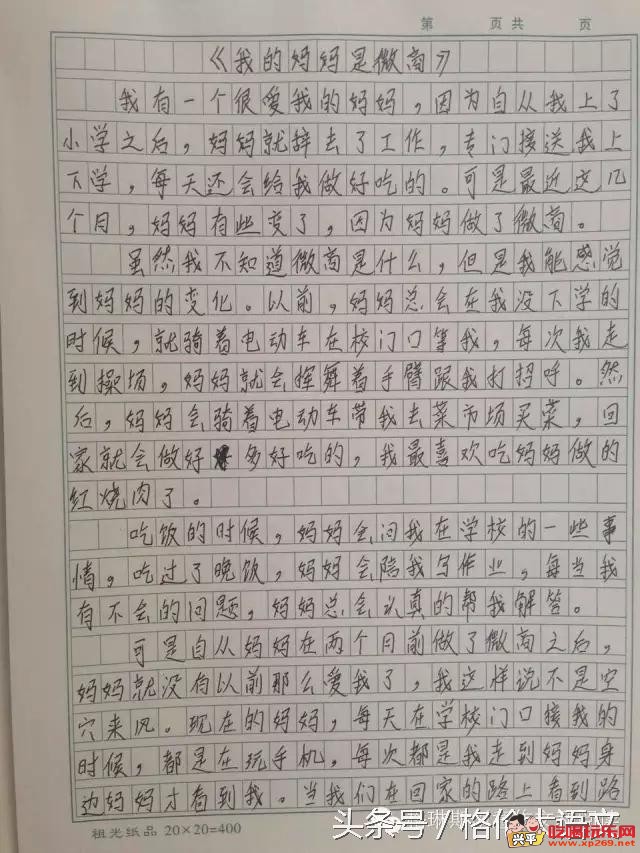 第 页共 页
《我的妈妈是微商》
我有一个很爱我的妈妈，因为自从我上了
小学之后，妈妈就辞去了工作，专门接送我上
下学，每天还会给我做好吃的。可是最近这几
个月，妈妈有些变了，因为妈妈做了微商。
虽然我不知道微商是什么，但是我能感觉
到妈妈的变化。以前，妈妈总会在我没下学的
时候，就骑着电动车在校门口等我，每次我走
到操场，妈妈就会挥舞着手臂跟我打招呼。然
后，妈妈会骑着电动车带我去菜市场买菜，回
家就会做好多好吃的，我最喜欢吃妈妈做的
红烧肉了。
吃饭的时候，妈妈会问我在学校的一些事
情，吃过了晚饭，妈妈会陪我写作业，每当我
有不会的问题，妈妈总会认真的帮我解答。
可是自从妈妈在两个月前做了微商之后，
妈妈就没有以前那么爱我了，我这样说不是空
穴来风。现在的妈妈，每天在学校门口接我的
时候，都是在玩手机，每次都是我走到妈妈身
边妈妈才看到我。当我们在回家的路上看到路
祖光纸品 20×20=400
头条号/格伦大语文
兴平 吃喝玩乐网
www.xp269.net